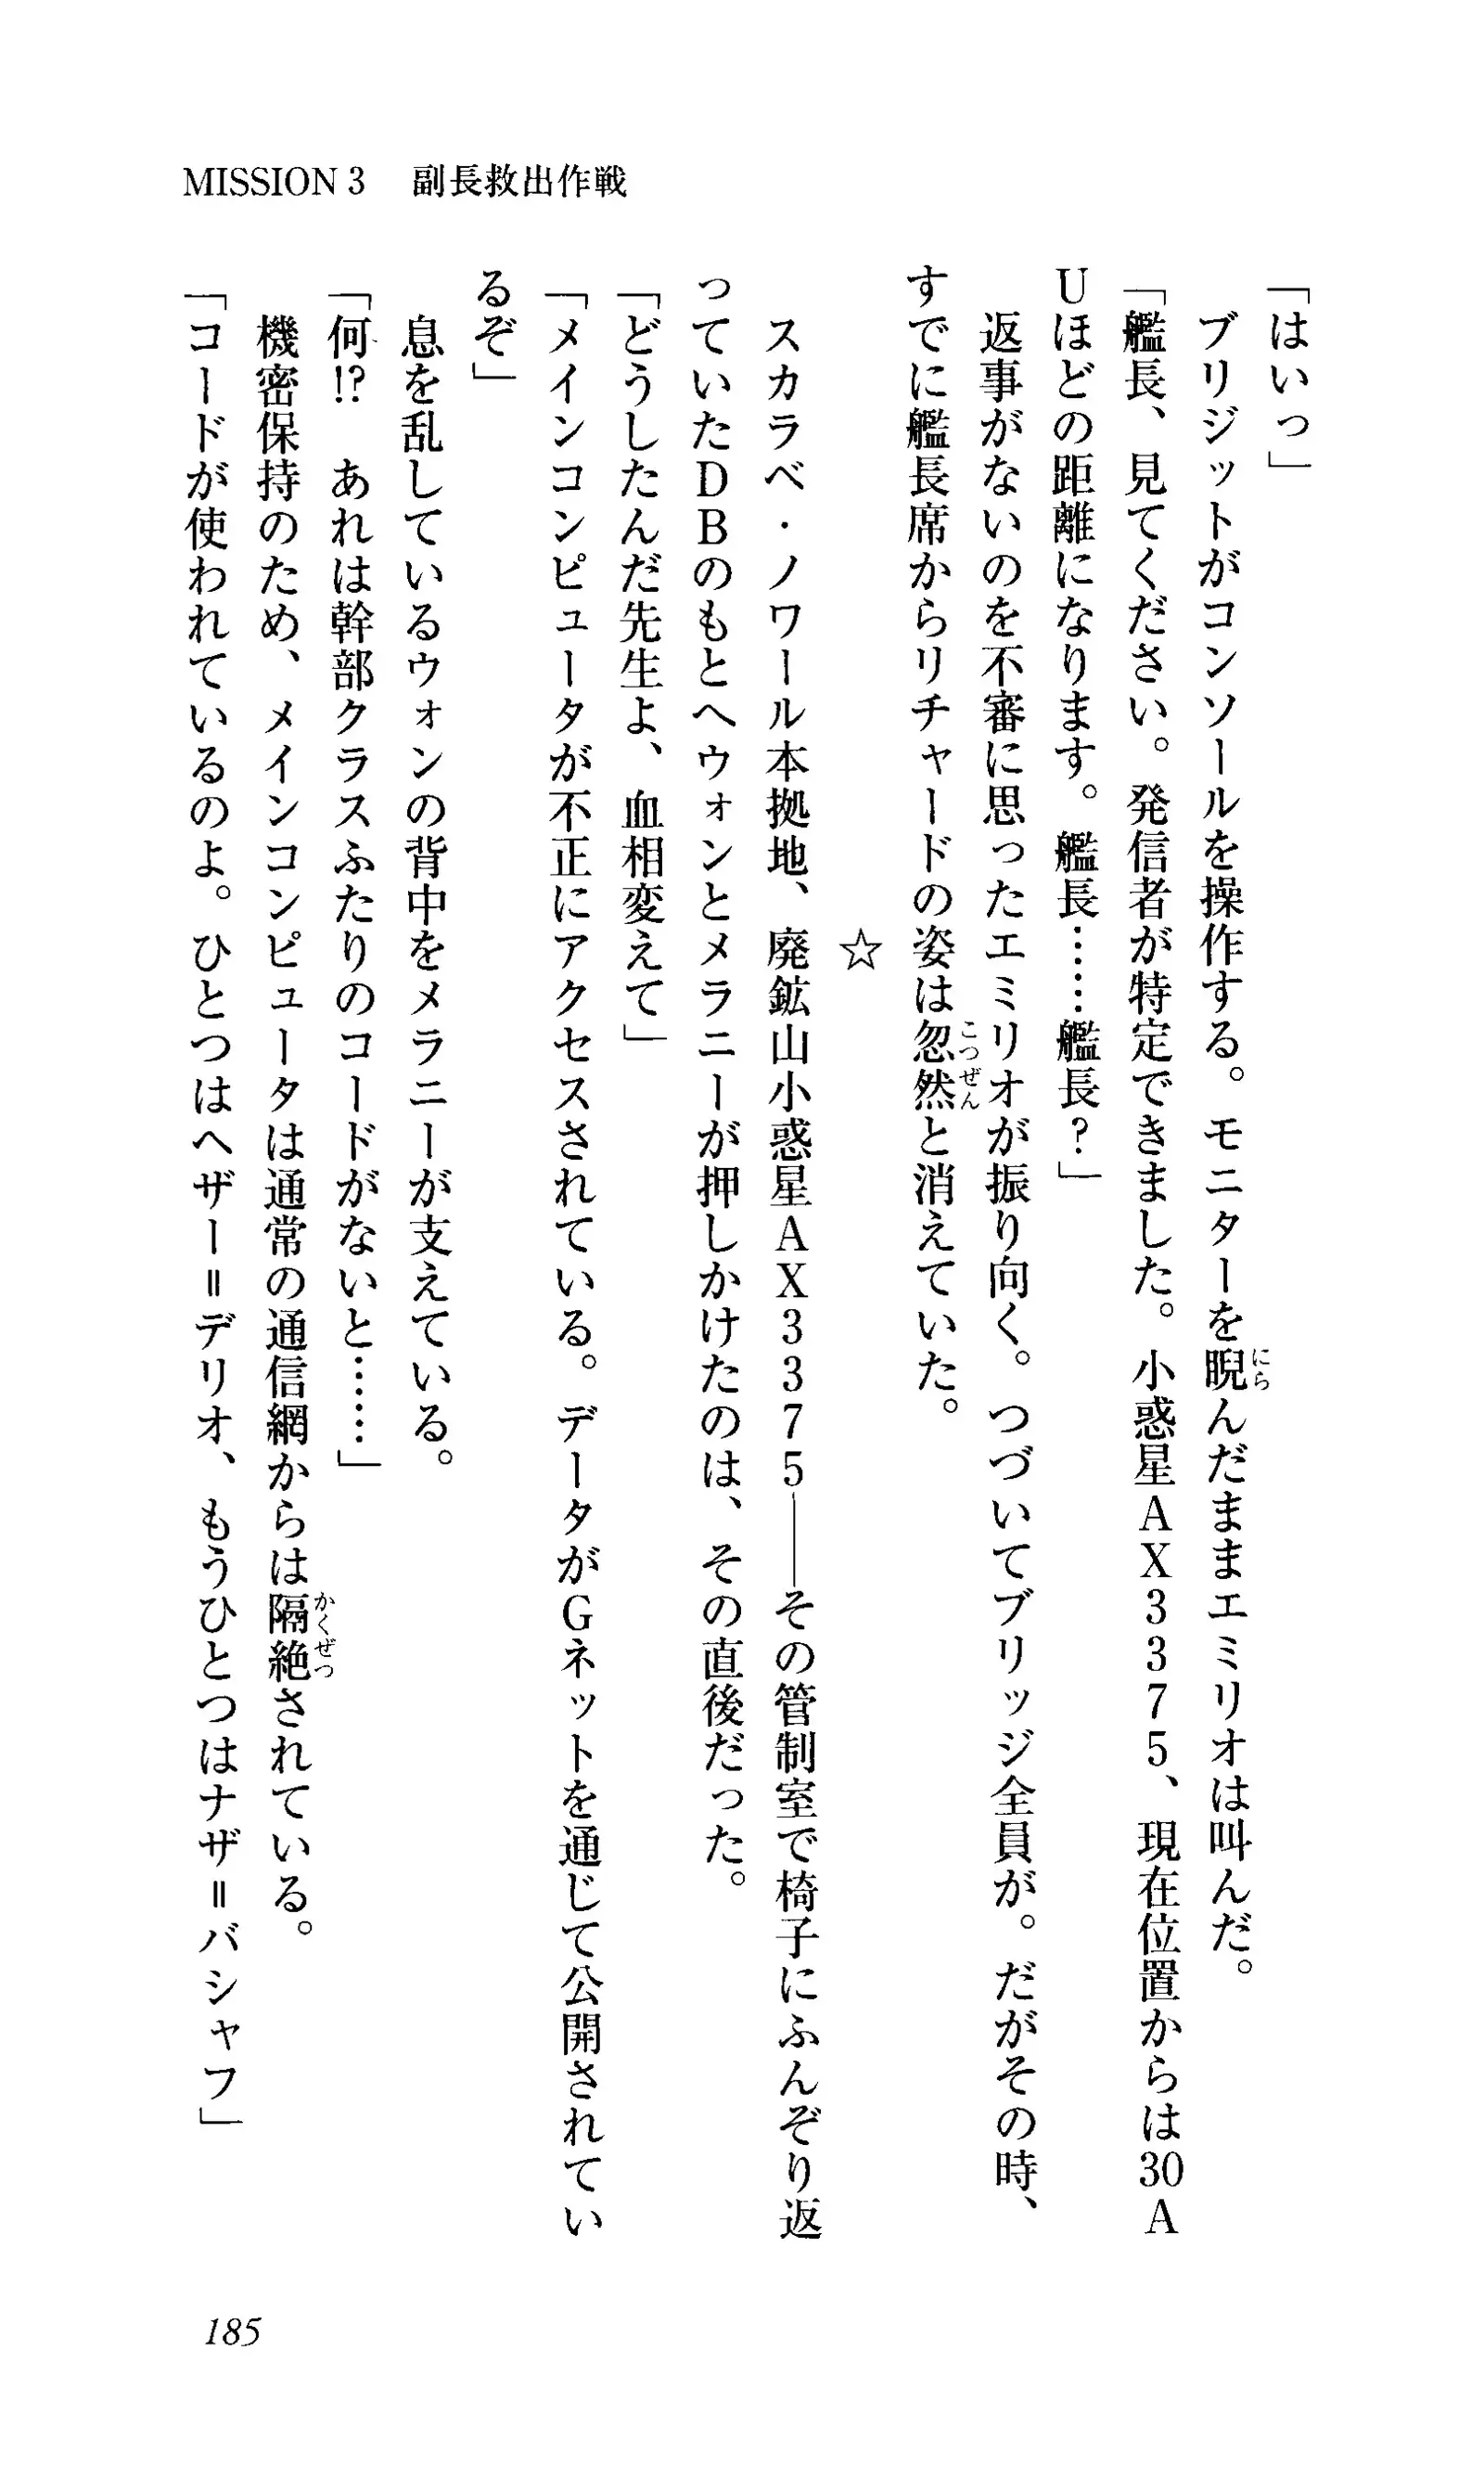 MISSION 3　副長救出作戦
「はいっ」
　ブリジットがコンソールを操作する。モニターを睨んだままエミリオは叫んだ。
「艦長、見てください。発信者が特定できました。小惑星ＡＸ３３７５、現在位置からは30Ａ
Ｕほどの距離になります。艦長……艦長？」
　返事がないのを不審に思ったエミリオが振り向く。つづいてブリッジ全員が。だがその時、
すでに艦長席からリチャードの姿は忽然と消えていた。
☆
　スカラベ・ノワール本拠地、廃鉱山小惑星ＡＸ３３７５――その管制室で椅子にふんぞり返
っていたＤＢのもとへウォンとメラニーが押しかけたのは、その直後だった。
「どうしたんだ先生よ、血相変えて」
「メインコンピュータが不正にアクセスされている。データがＧネットを通じて公開されてい
るぞ」
　息を乱しているウォンの背中をメラニーが支えている。
「何!?　あれは幹部クラスふたりのコードがないと……」
　機密保持のため、メインコンピュータは通常の通信網からは隔絶されている。
「コードが使われているのよ。ひとつはヘザー＝デリオ、もうひとつはナザ＝バシャフ」
185